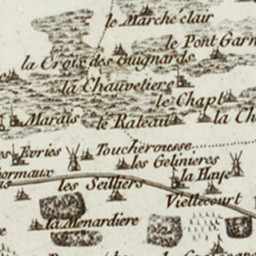 le Marché clair
le Pont Garn
la Croix des Guignards
la Chauvetiere
le Chapt
Marais
le Rateau
la Ch
es Evries
Toucherousse
les Gelinieres
ormaux
la Haye
les Seilliers
Viellecourt
la Menardiere